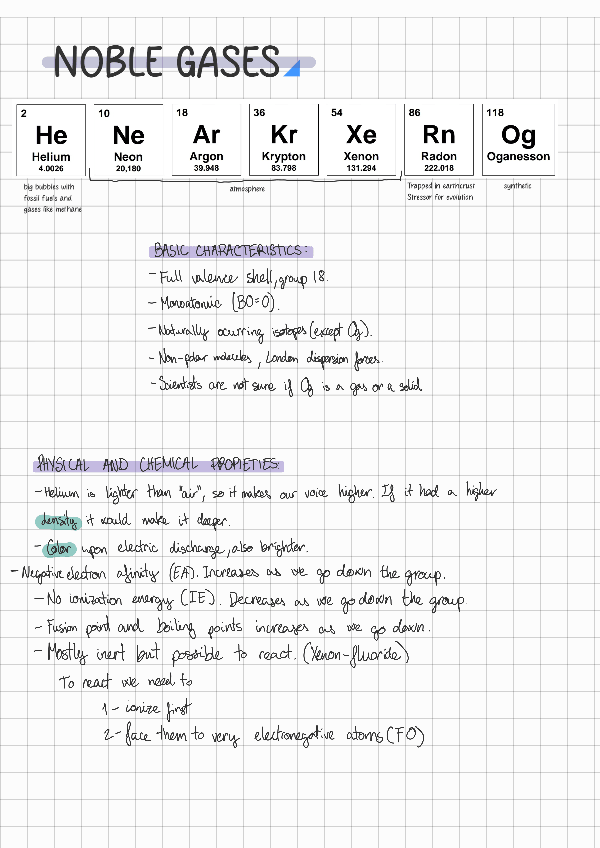 NOBLE GASES
2 10 18 36 54 86 118
He Ne Ar Kr Xe Rn Og
Helium Neon Argon Krypton Xenon Radon Oganesson
4.0026 20,180 39.948 83.798 131.294 222.018
big bubbles with
fossil fuels and
gases like methane
atmosphere
Trapped in earthcrust
Stressor for evolution
synthetic
BASIC CHARACTERISTICS:
- Full valence shell, group 18.
- Monoatomic (BO=0).
- Naturally ocurring isotopes (except Og).
- Non-polar molecules, London dispersion forces.
- Scientists are not sure if Og is a gas or a solid
PHYSICAL AND CHEMICAL PROPIETIES:
- Helium is lighter than "air", so it makes our voice higher. If it had a higher
density it would make it deeper.
- Color upon electric discharge, also brighter.
- Negative electron afinity (EA). Increases as we go down the group.
- No ionization energy (IE). Decreases as we go down the group.
- Fusion point and boiling points increases as we go down.
- Mostly inert but possible to react. (Xenon-fluoride)
To react we need to
1 - ionize first
2 - face them to very electronegative atoms (FO)